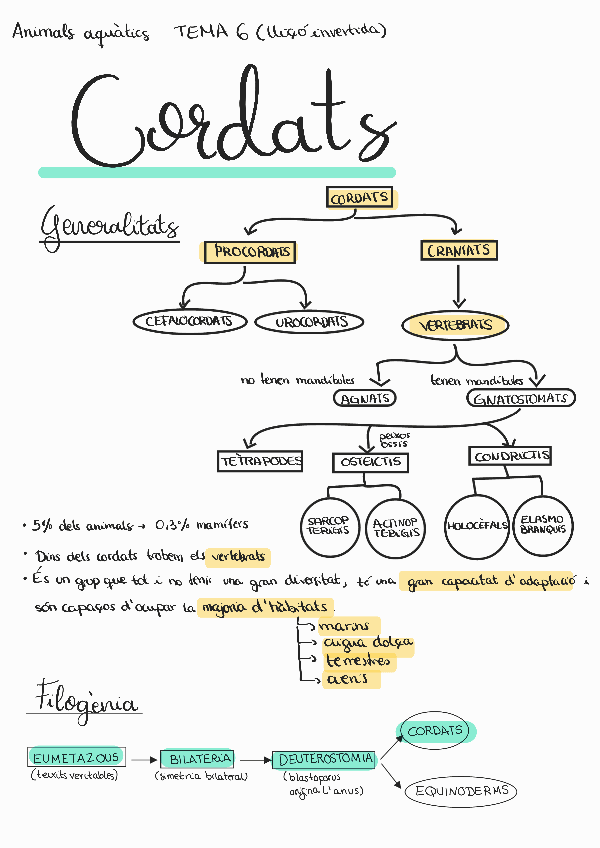 Animals aquàtics TEMA 6 (lliçó invertida)
Cordats
Generalitats
CORDATS
PROCORDATS
CRANIATS
CEFALOCORDATS
UROCORDATS
VERTEBRATS
no tenen mandíbules
tenen mandíbules
AGNATS
GNATOSTOMATS
peixos
ossis
TETRÀPODES
OSTEICTIS
CONDRICTIS
SARCOP
TERIGIS
ACTINOP
TERIGIS
HOLOCÈFALS
ELASMO
BRANQUIS
• 5% dels animals → 0,3% mamífers
• Dins dels cordats trobem els vertebrats
• És un grup que tot i no tenir una gran diversitat, té una gran capacitat d'adaptació i
són capaços d'ocupar la majoria d'hàbitats.
marins
aigua dolça
terrestres
aeris
Filogènia
EUMETAZOUS
(teixits veritables)
BILATERIA
(simetria bilateral)
DEUTEROSTOMIA
(blastoporus
origina l'anus)
CORDATS
EQUINODERMS